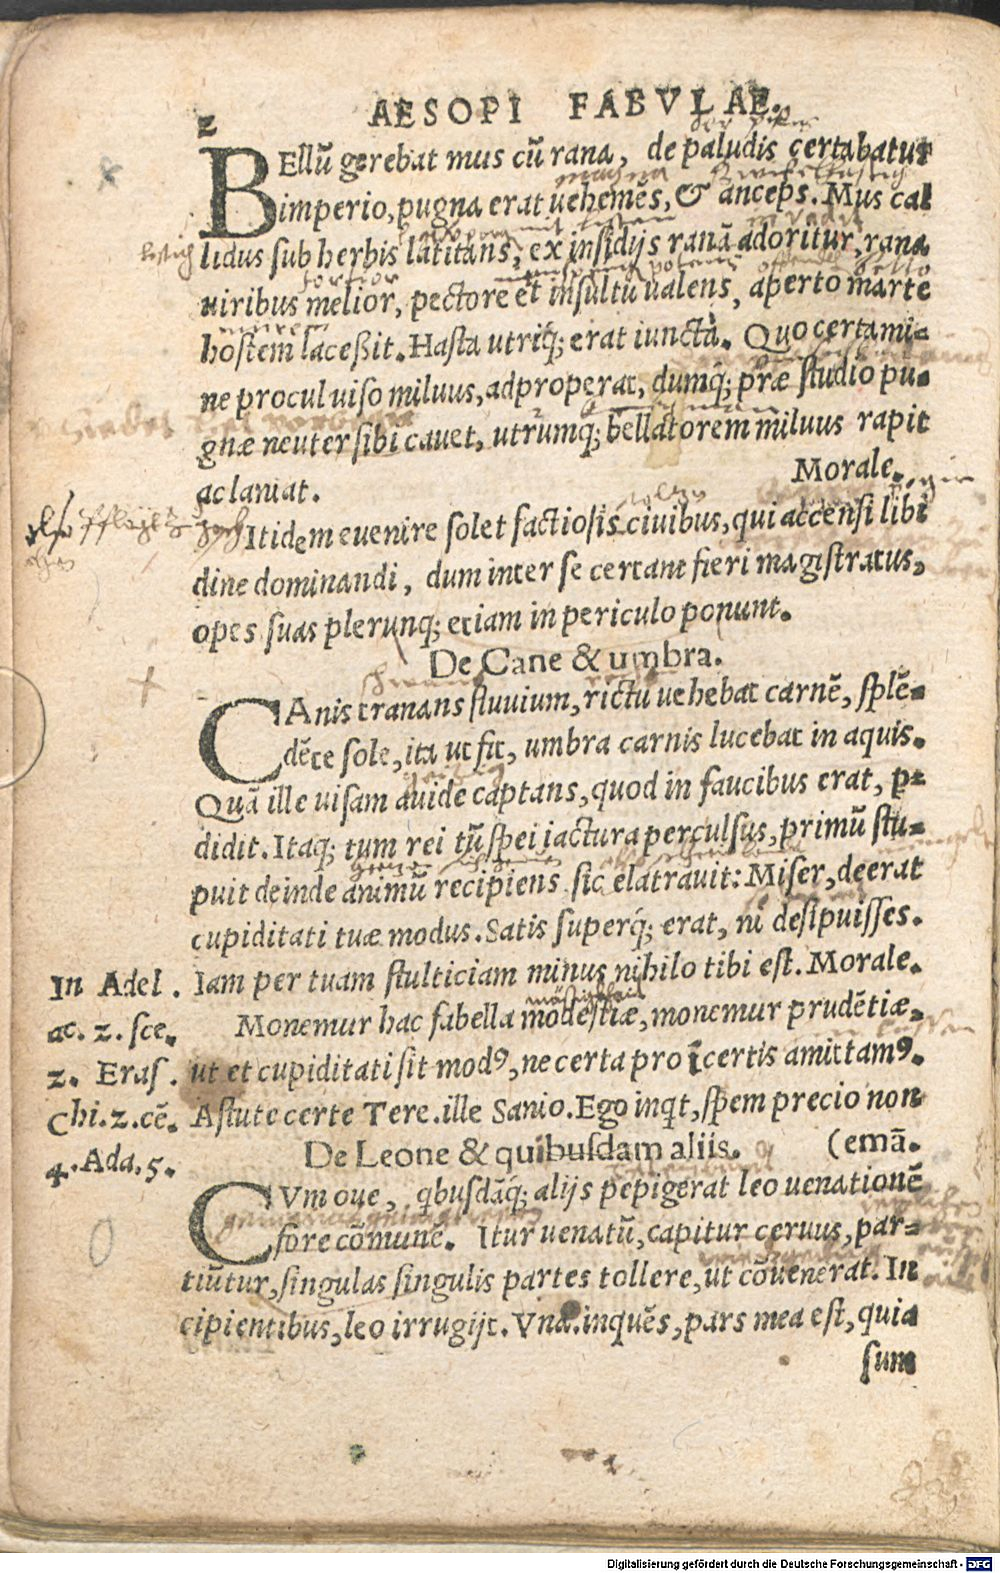 2 AESOPI FABVLAE.
BEllū gerebat mus cū rana, de paludis certabatur
imperio, pugna erat uehemēs, & anceps. Mus cal
lidus sub herbis latitans, ex insidijs ranā adoritur, rana
uiribus melior, pectore et insultu ualens, aperto marte
hostem laceßit. Hasta utriq; erat iunctà. Quo certami-
ne procul uiso miluus, adproperat, dumq; præ studio pu-
gnæ neuter sibi cauet, utrumq; bellatorem miluus rapit
ac laniat. Morale.
Itidem euenire solet factiosis ciuibus, qui accensi libi
dine dominandi, dum inter se certant fieri magistratus,
opes suas plerunq; etiam in periculo ponunt.
De Cane & umbra.
CAnis tranans fluuium, rictu uehebat carnē, splē-
dēte sole, ita ut fit, umbra carnis lucebat in aquis.
Quā ille uisam auide captans, quod in faucibus erat, p-
didit. Itaq; tum rei tū spei iactura perculsus, primū stu-
puit deinde animū recipiens sic elatrauit: Miser, deerat
cupiditati tuæ modus. Satis superq́; erat, ni desipuisses.
Iam per tuam stulticiam minus nihilo tibi est. Morale.
Monemur hac fabella modestiæ, monemur prudētiæ,
ut et cupiditati sit modꝰ, ne certa pro īcertis amittamꝰ.
Astute certe Tere. ille Sanio. Ego inqt, spem precio non
In Adel.
ac. 2. sce.
2. Eras.
Chi. 2. cē.
4. Ada. 5.
De Leone & quibusdam aliis. (emā.
CVm oue, qbusdāq; alijs pepigerat leo uenationē
fore cōmunē. Itur uenatū, capitur ceruus, par-
tiūtur, singulas singulis partes tollere, ut cōuenerat. In
cipientibus, leo irrugijt. Vna. inquēs, pars mea est, quia
sum
Digitalisierung gefördert durch die Deutsche Forschungsgemeinschaft - DFG